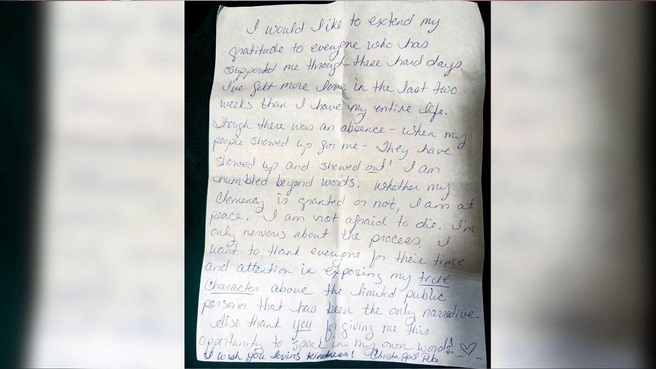 I would like to extend my
gratitude to everyone who has
supported me through these hard days.
I've felt more love in the last two
weeks than I have my entire life.
Though there was an absence - when my
people showed up for me - They have
showed up and showed out! I am
humbled beyond words. Whether my
Clemency is granted or not, I am at
peace. I am not afraid to die. I'm
only nervous about the process. I
want to thank everyone for their time
and attention in exposing my true
character above the limited public
persona that has been the only narrative.
Also thank you for giving me this
opportunity to speak in my own words!
I wish you loving kindness!